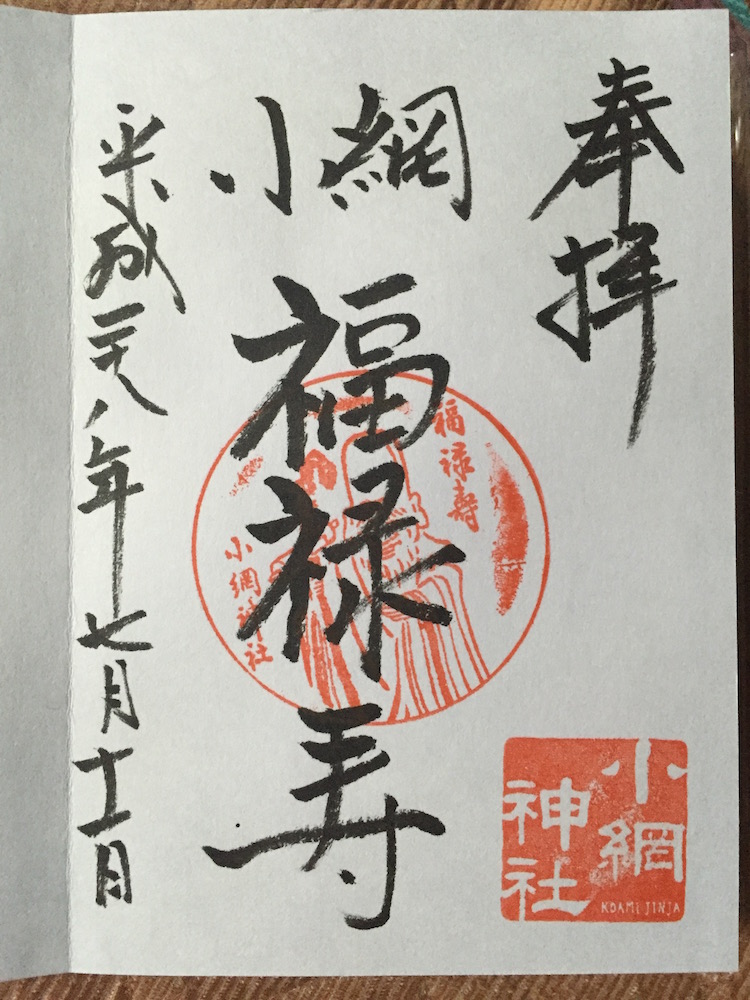 奉拝
小網
福禄寿
平成二十八年七月十一日
福禄寿
小網神社
小網
神社
KOAMI JINJA